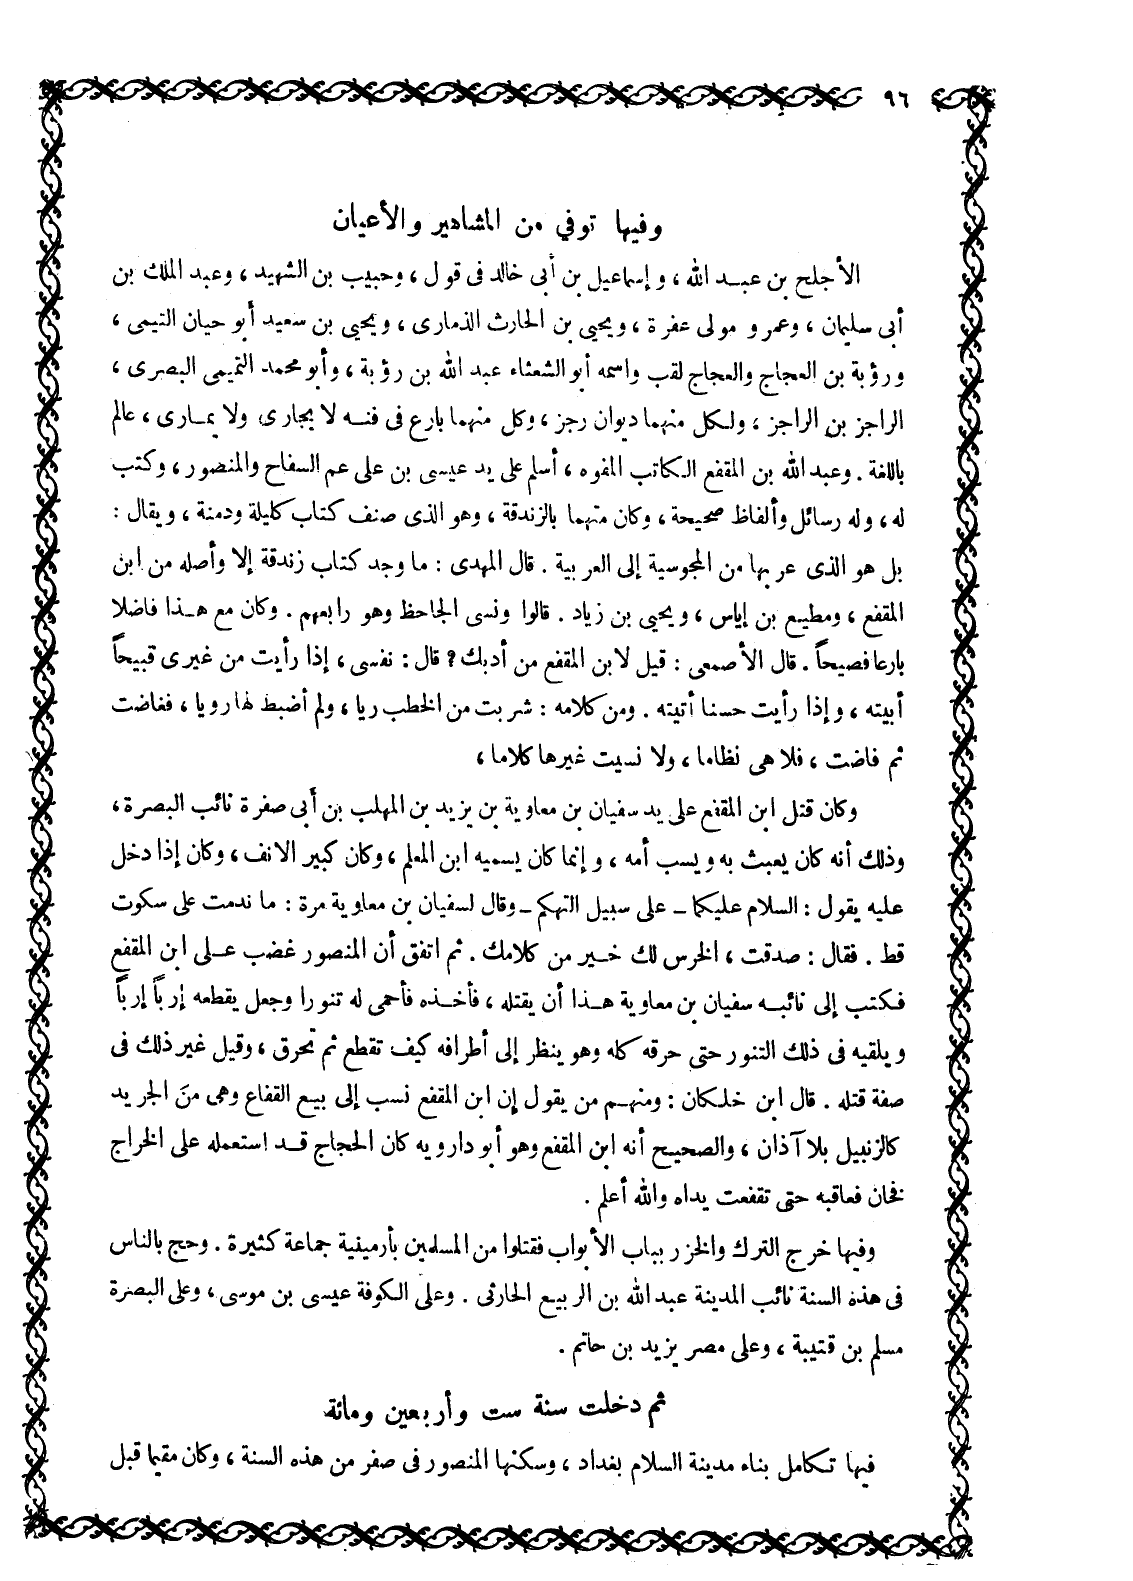 ٩٦
وفيها توفي من المشاهير والأعيان
الأجلح بن عبد الله ، وإسماعيل بن أبى خالد فى قول ، وحبيب بن الشهيد ، وعبد الملك بن
أبى سليمان ، وعمرو مولى عفرة ، ويحيى بن الحارث الذمارى ، ويحيى بن سعيد أبو حيان التيمى ،
ورؤبة بن العجاج والعجاج لقب واسمه أبو الشعثاء عبد الله بن رؤبة ، وأبو محمد التميمى البصرى ،
الراجز بن الراجز ، ولكل منهما ديوان رجز ، وكل منهما بارع فى فنه لا يجارى ولا يمارى ، عالم
باللغة . وعبد الله بن المقفع الكاتب المفوه ، أسلم على يد عيسى بن على عم السفاح والمنصور ، وكتب
له ، وله رسائل وألفاظ صحيحة ، وكان متهما بالزندقة ، وهو الذى صنف كتاب كليلة ودمنة ، ويقال :
بل هو الذى عربها من المجوسية إلى العربية . قال المهدى : ما وجد كتاب زندقة إلا وأصله من ابن
المقفع ، ومطيع بن إياس ، ويحيى بن زياد . قالوا ونسى الجاحظ وهو رابعهم . وكان مع هذا فاضلا
بارعا فصيحاً . قال الأصمعى : قيل لابن المقفع من أدبك ? قال : نفسى ، إذا رأيت من غيرى قبيحاً
أبيته ، وإذا رأيت حسنا أتيته . ومن كلامه : شربت من الخطب ريا ، ولم أضبط لها رويا ، فغاضت
ثم فاضت ، فلا هى نظاما ، ولا نسيت غيرها كلاما ،
وكان قتل ابن المقفع على يد سفيان بن معاوية بن يزيد بن المهلب بن أبى صفرة نائب البصرة ،
وذلك أنه كان يعبث به ويسب أمه ، وإنما كان يسميه ابن المعلم ، وكان كبير الانف ، وكان إذا دخل
عليه يقول : السلام عليكما ـ على سبيل التهكم ـ وقال لسفيان بن معاوية مرة : ما ندمت على سكوت
قط . فقال : صدقت ، الخرس لك خير من كلامك . ثم اتفق أن المنصور غضب على ابن المقفع
فكتب إلى نائبه سفيان بن معاوية هذا أن يقتله ، فأخذه فأحمى له تنورا وجعل يقطعه إرباً إرباً
ويلقيه فى ذلك التنور حتى حرقه كله وهو ينظر إلى أطرافه كيف تقطع ثم تحرق ، وقيل غير ذلك فى
صفة قتله . قال ابن خلكان : ومنهم من يقول إن ابن المقفع نسب إلى بيع القفاع وهى من الجريد
كالزنبيل بلا آذان ، والصحيح أنه ابن المقفع وهو أبو دارويه كان الحجاج قد استعمله على الخراج
فخان فعاقبه حتى تقفعت يداه والله أعلم .
وفيها خرج الترك والخزر بباب الأبواب فقتلوا من المسلمين بأرمينية جماعة كثيرة . وحج بالناس
فى هذه السنة نائب المدينة عبد الله بن الربيع الحارثى . وعلى الكوفة عيسى بن موسى ، وعلى البصرة
مسلم بن قتيبة ، وعلى مصر يزيد بن حاتم .
ثم دخلت سنة ست وأربعين ومائة
فيها تكامل بناء مدينة السلام بغداد ، وسكنها المنصور فى صفر من هذه السنة ، وكان مقيما قبل